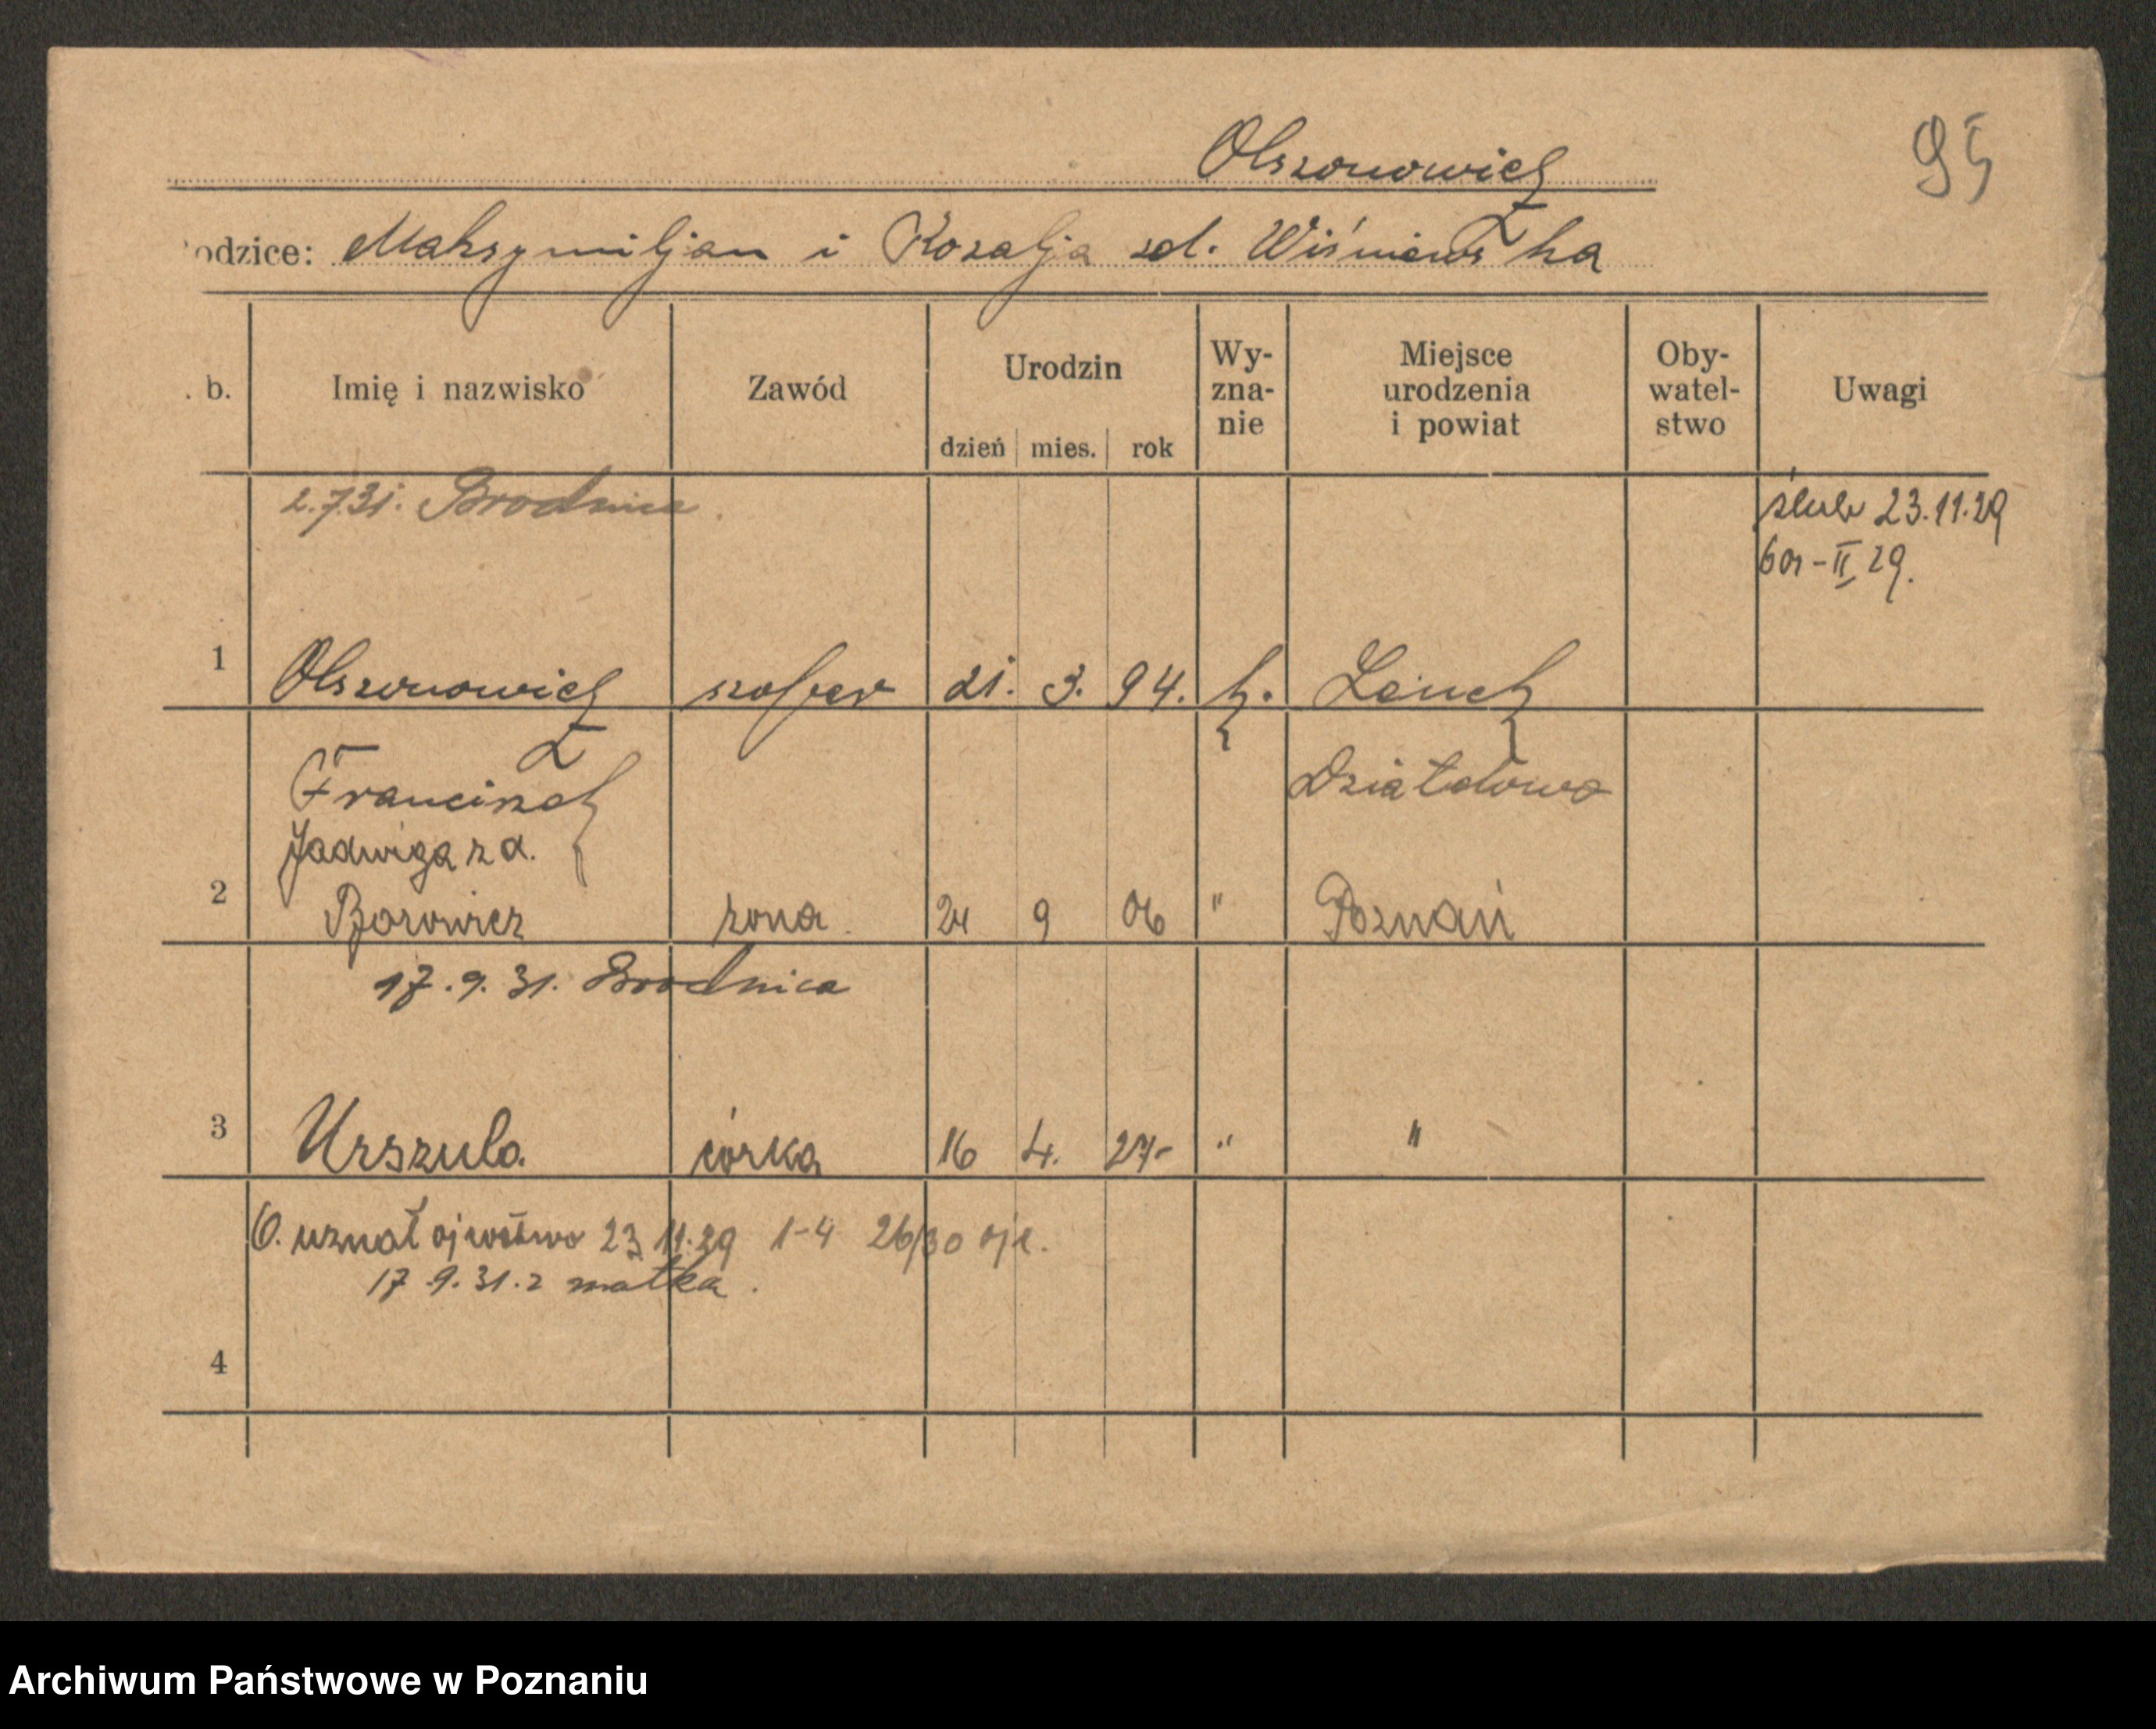 Olszonowicz
95
odzice: Maksymiljan i Rozalja zd. Wiśniewska
. b. Imię i nazwisko Zawód Urodzin dzień mies. rok Wy-znanie Miejsce urodzenia i powiat Oby-watel-stwo Uwagi
2.7.31. Brodnica. ślub 23.11.29
601-II 29.
1 Olszonowicz szofer 21. 3. 94. k. Lonck
Franciszek Działdowo
Jadwiga z d.
2 Borowicz żona. 24 9 06 " Poznań
17.9.31. Brodnica
3 Urszula córka 16 4. 27- " "
O. uznał ojcostwo 23 11.29 1-4 26/30 ojc.
17.9.31. z matką.
4
Archiwum Państwowe w Poznaniu